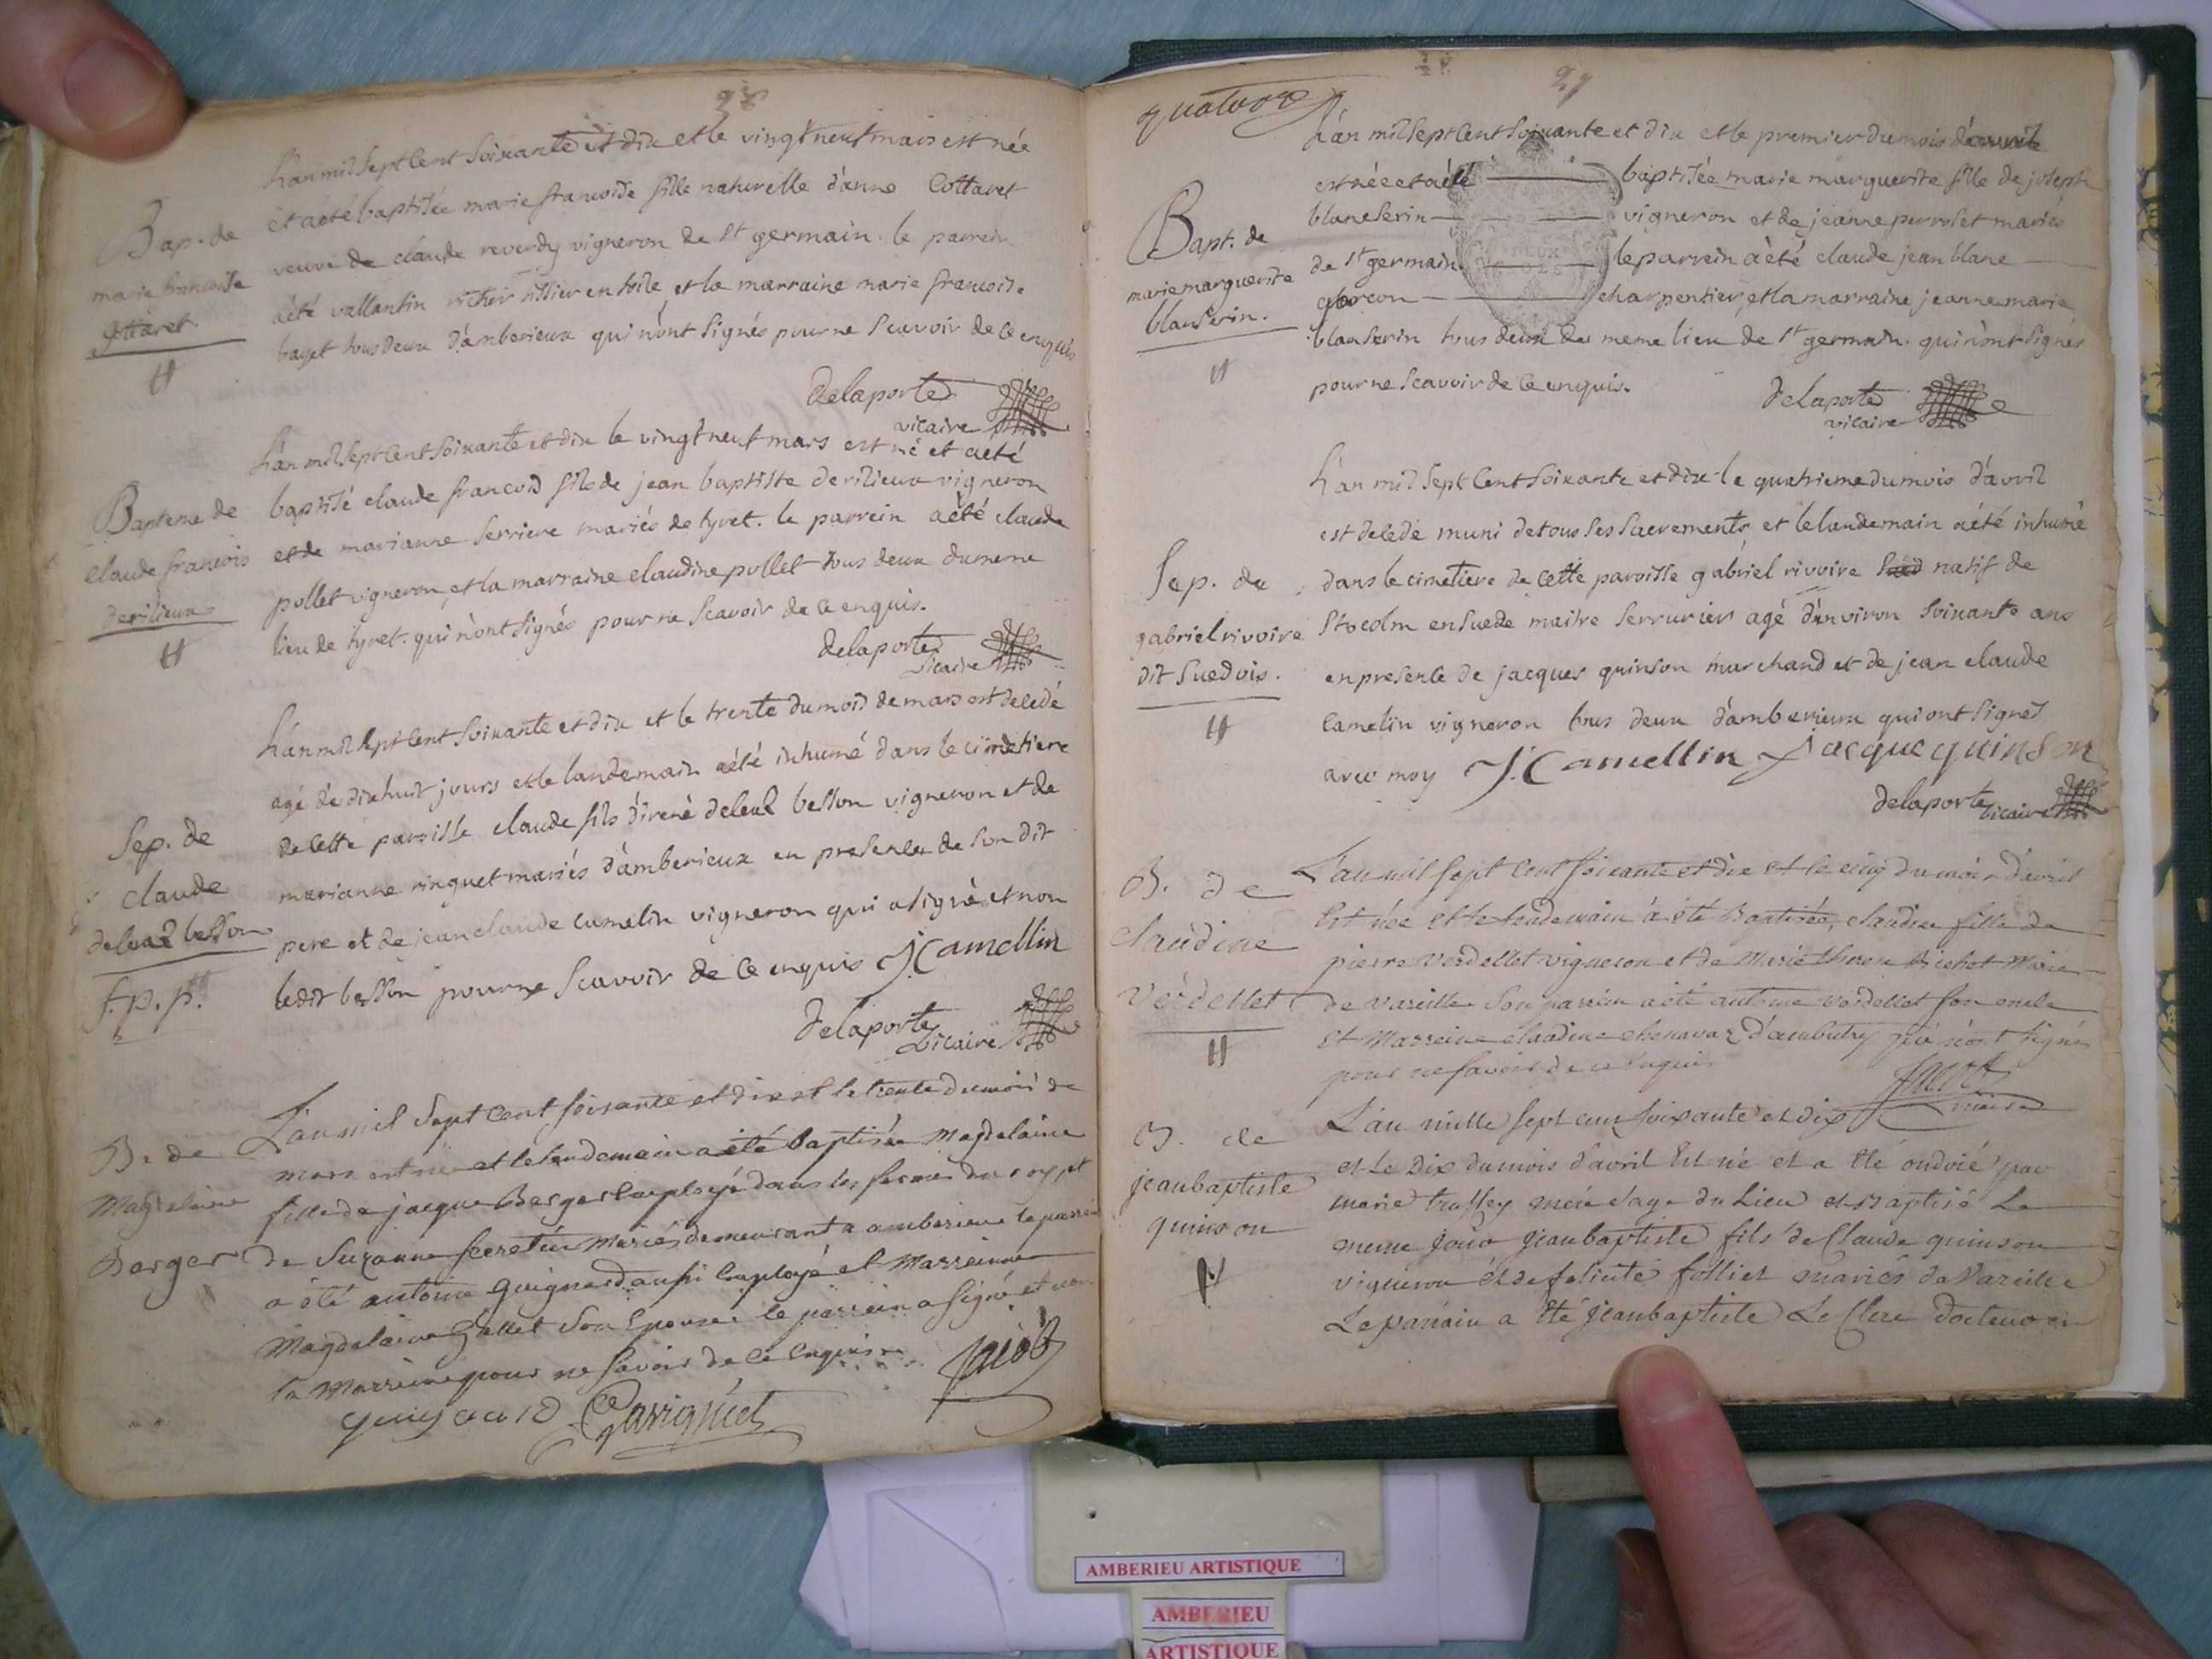 28
Bap. de
marie francoise
Cottaret
L'an mil sept cent soixante et dix et le vingt neuf mars est née
et a été baptisée marie francoise fille naturelle d'anne Cottaret
veuve de claude reverdy vigneron de st germain. le parrein
a été vallantin tissier en toile et la marraine marie francoise
bayet tous deux d'amberieux qui n'ont signés pour ne scavoir de ce enquis
delaporte
vicaire
Bapteme de
claude francois
derilieux
L'an mil sept cent soixante et dix le vingt neuf mars est né et a été
baptisé claude francois fils de jean baptiste derilieux vigneron
et de marianne serriere mariés de tyret. le parrein a été claude
pollet vigneron et la marraine claudine pollet tous deux du meme
lieu de tyret. qui n'ont signés pour ne scavoir de ce enquis.
delaporte
vicaire
Sep. de
claude
deleuz besson
f. p. p.
L'an mil sept cent soixante et dix et le trente du mois de mars est decedé
agé de dix huit jours et le landemain a été inhumé dans le cimetiere
de cette paroisse claude fils d'irené deleuz besson vigneron et de
marianne ringuet mariés d'amberieux en presence de son dit
pere et de jean claude camelin vigneron qui a signé et non
ledit besson pour ne scavoir de ce enquis J Camellin
delaporte
vicaire
B. de
Magdelaine
Berger
L'an mil sept cent soixante et dix et le trente du mois de
mars est née et le lendemain a été baptisée Magdelaine
fille de jacque Berger employé dans les fermes du roy et
de Suzanne secretier mariés demeurant a amberieux le parrein
a été antoine guignard aussi employé et Marreinne
Magdelaine Gallet son epouse le parrein a signé et non
la Marreine pour ne savoir de ce enquis
29
quatorze
Bapt. de
marie marguerite
blanserin.
L'an mil sept cent soixante et dix et le premier du mois d'avril
est née et a été baptisée marie marguerite fille de joseph
blanserin vigneron et de jeanne perroset mariés
de st germain le parrein a été claude jean blanc
garcon charpentier, et la marraine jeanne marie
blanserin tous deux du meme lieu de st germain. qui n'ont signés
pour ne scavoir de ce enquis.
delaporte
vicaire
Sep. de
gabriel rivoire
dit suedois.
L'an mil sept cent soixante et dix le quatrieme du mois d'avril
est decedé muni de tous ses sacrements et le landemain a été inhumé
dans le cimetiere de cette paroisse gabriel rivoire natif de
Stocolm en suede maitre serrurier agé d'environ soixante ans
en presence de jacques quinson marchand et de jean claude
Camelin vigneron tous deux d'amberieux qui ont signés
avec moy J. Camellin Jacque quinson
delaporte vicaire
B. de
claudine
verdellet
L'an mil sept cent soixante et dix et le cinq du mois d'avril
est née et le lendemain a été Baptisée, claudine fille de
pierre verdellet vigneron et de Marie
de vareille son parrein a été antoine verdellet son oncle
et Marreine claudine chenavaz d'ambutry qui n'ont signés
pour ne savoir de ce enquis
B. de
jeanbaptiste
quinson
L'an mille sept cent soixante et dix
et le dix du mois d'avril est né et a été ondoié par
marie trassey mere sage du Lieu et Baptisé le
meme jour jeanbaptiste fils de Claude quinson
vigneron et de felicité follier mariés de Vareille
Le parrain a été jeanbaptiste Le Clerc docteur en
AMBERIEU ARTISTIQUE
AMBERIEU
ARTISTIQUE